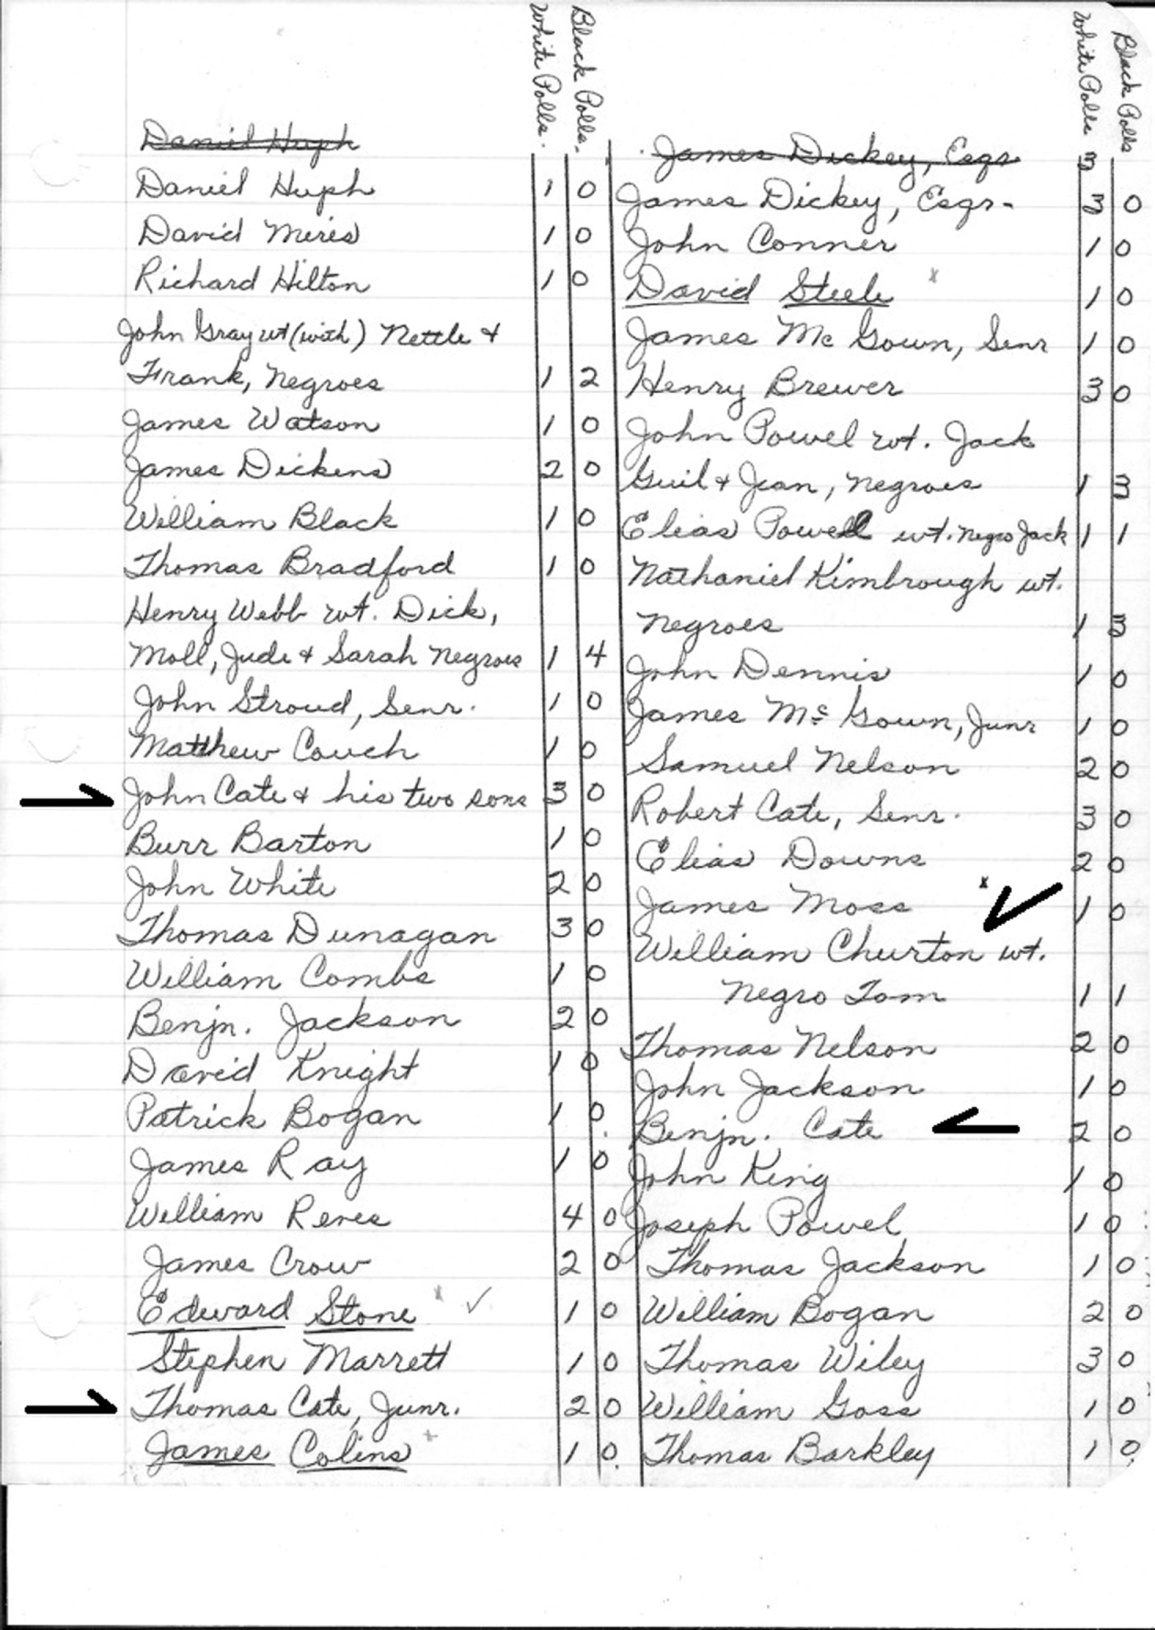 White Polls.
Black Polls.
Daniel Huph
Daniel Huph 1 0
David Meris 1 0
Richard Hilton 1 0
John Gray wt (with) Nettle &
Frank, Negroes 1 2
James Watson 1 0
James Dickens 2 0
William Black 1 0
Thomas Bradford 1 0
Henry Webb wt. Dick,
Moll, Jude & Sarah Negroes 1 4
John Stroud, Senr. 1 0
Matthew Couch 1 0
John Cate & his two sons 3 0
Burr Barton 1 0
John White 2 0
Thomas Dunagan 3 0
William Combs 1 0
Benjn. Jackson 2 0
David Knight 1 0
Patrick Bogan 1 0
James Ray 1 0
William Reves 4 0
James Crow 2 0
Edward Stone x ✓ 1 0
Stephen Marrett 1 0
Thomas Cate, Junr. 2 0
James Colins x 1 0
White Polls
Black Polls
James Dickey, Esqr 3
James Dickey, Esqr. 3 0
John Conner 1 0
David Steele x 1 0
James Mc Gown, Senr 1 0
Henry Brewer 3 0
John Powel wt. Jack
Guil & Jean, Negroes 1 3
Elias Powell wt. Negro Jack 1 1
Nathaniel Kimbrough wt.
Negroes 1 3
John Dennis 1 0
James Mc Gown, Junr 1 0
Samuel Nelson 2 0
Robert Cate, Senr. 3 0
Elias Downs 2 0
James Moss x 1 0
William Churton wt.
Negro Tom 1 1
Thomas Nelson 2 0
John Jackson 1 0
Benjn. Cate 2 0
John King 1 0
Joseph Powel 1 0
Thomas Jackson 1 0
William Bogan 2 0
Thomas Wiley 3 0
William Goss 1 0
Thomas Barkley 1 0